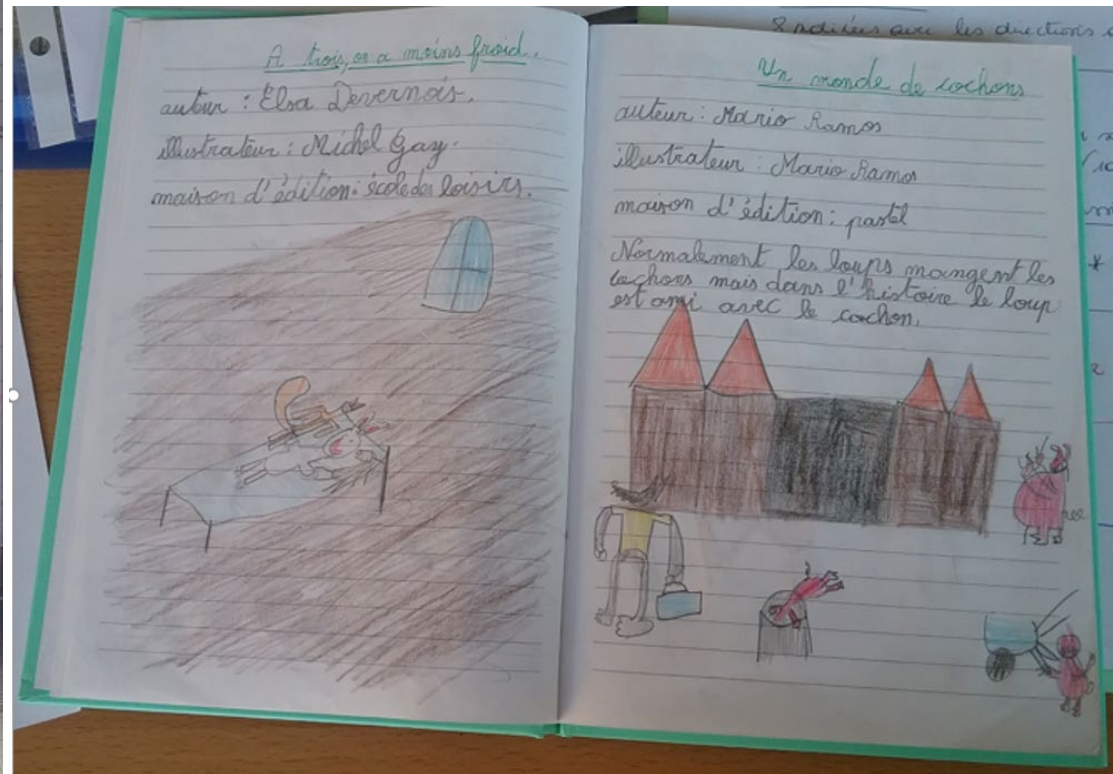 A trois, on a moins froid.
auteur : Elsa Devernois.
illustrateur : Michel Gay.
maison d'édition : école des loisirs.
Un monde de cochons
auteur : Mario Ramos
illustrateur : Mario Ramos
maison d'édition : pastel
Normalement les loups mangent les
cochons mais dans l'histoire le loup
est ami avec le cochon.
avec les directions